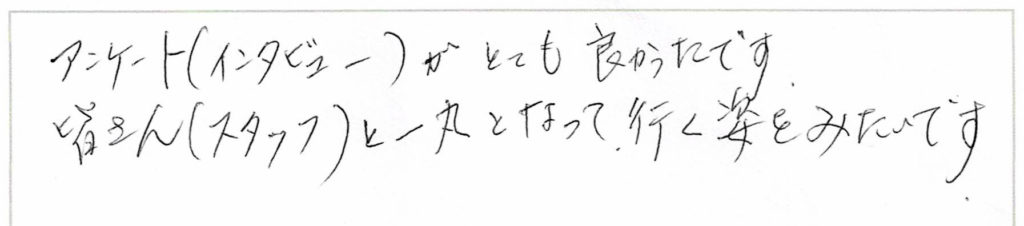 アンケート(インタビュー)がとても良かったです.
皆さん(スタッフ)と一丸となって.行く姿をみたいです.